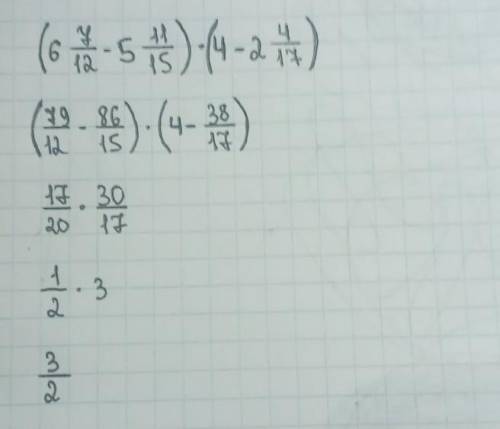 (6 7/12 - 5 11/15) · (4 - 2 4/17)
(79/12 - 86/15) · (4 - 38/17)
17/20 · 30/17
1/2 · 3
3/2